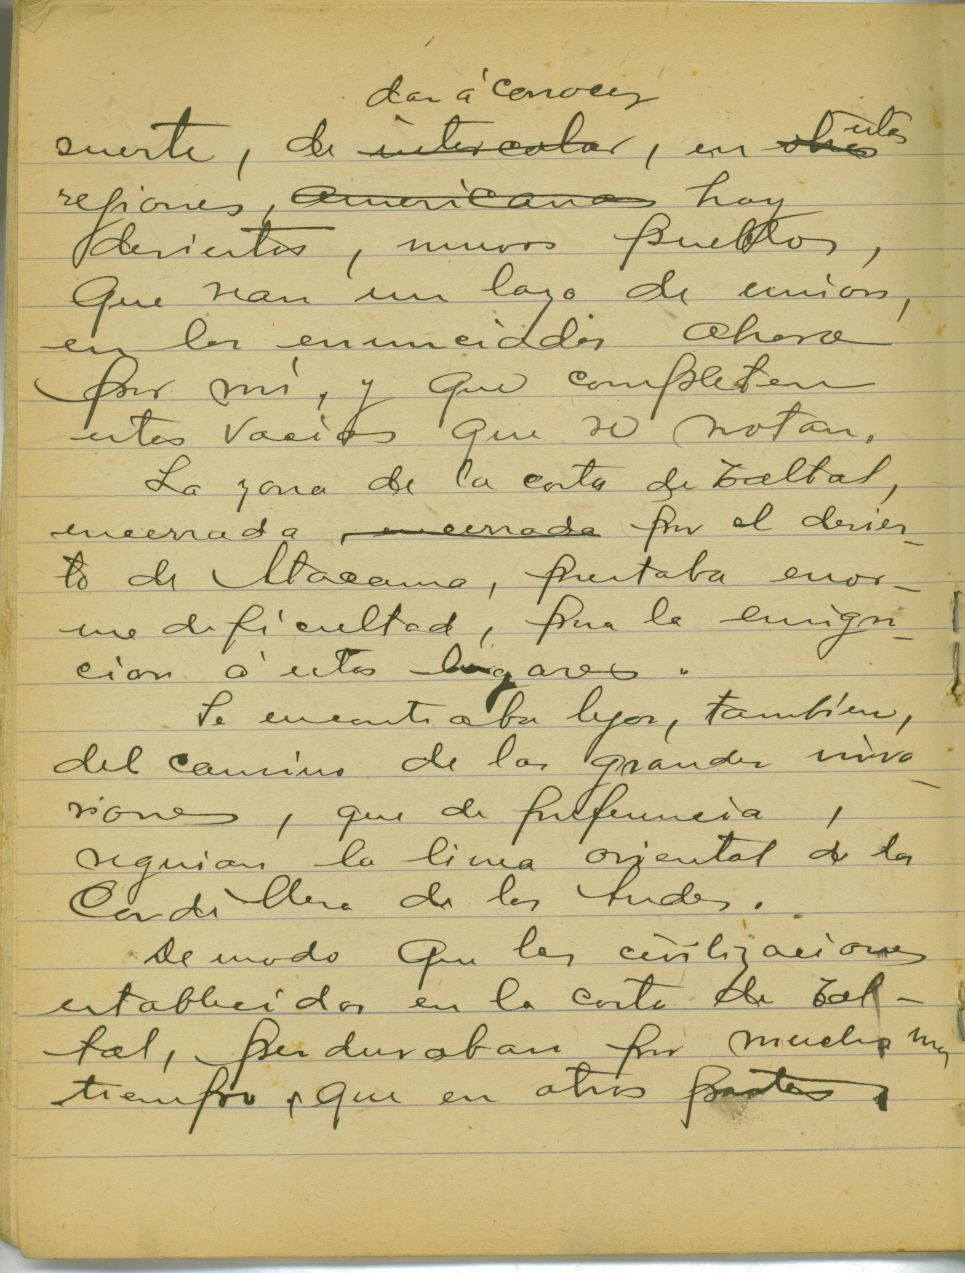 dar á conocer
suerte, de intercalar, en otras estas
regiones, americanas hoy
desiertas, nuevos pueblos,
que sean un lazo de union,
en los enunciados ahora
por mi, y que completen
estos vacios que se notan.
La zona de la costa de Taltal,
encerrada, encerrada por el desier-
to de Atacama, prestaba enor-
me dificultad, para la emigra-
cion á estos lugares.
Se encontraba lejos, tambien,
del camino de las grandes inva-
siones, que de preferencia,
seguian la linea oriental de la
Cordillera de los Andes.
De modo que las civilizaciones
establecidas en la costa de Tal-
tal, perduraban por mucho mas
tiempo, que en otras partes,